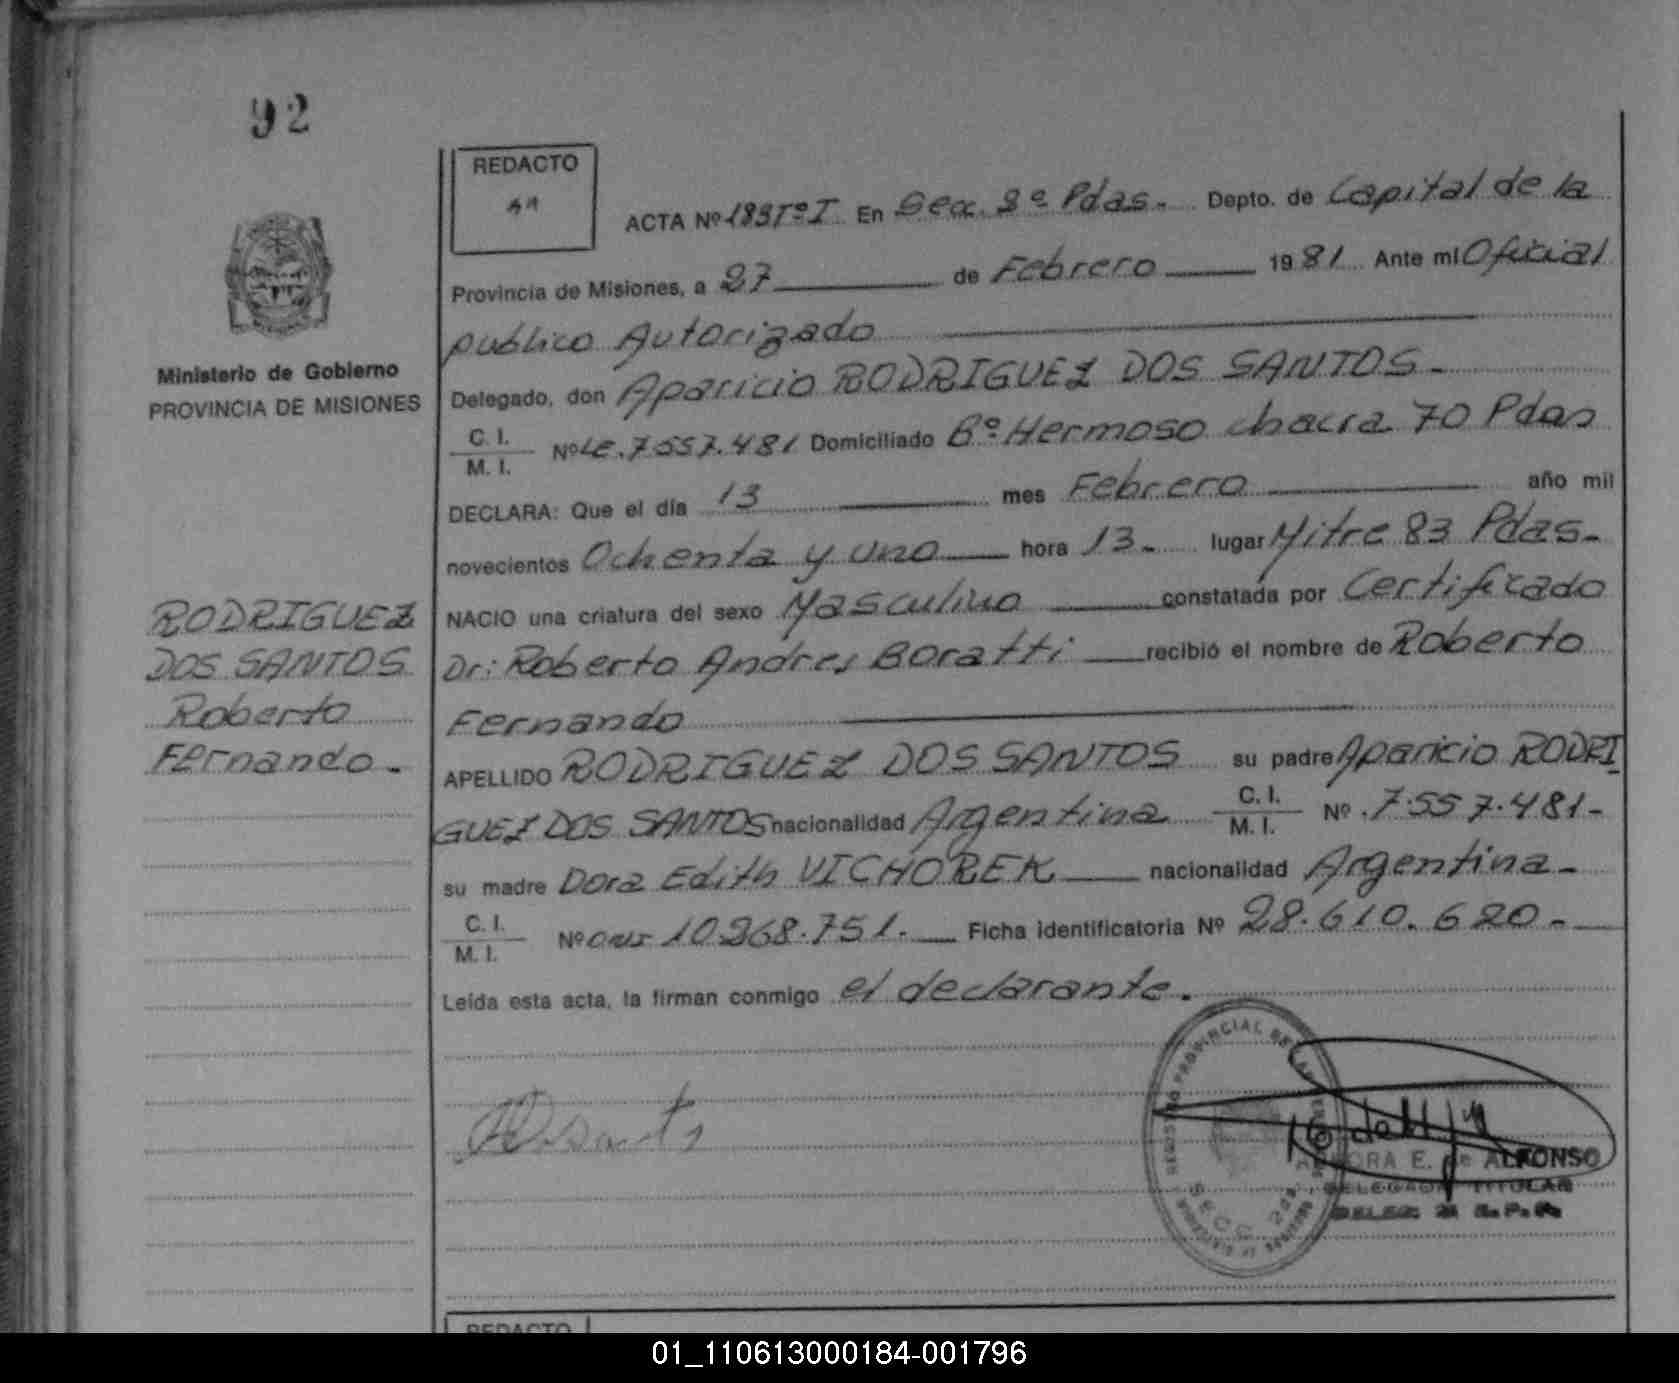 92
REDACTO
ACTA Nº 183 TºI En Secc. 2ª Pdas. Depto. de Capital de la
Provincia de Misiones, a 27 de Febrero 1981 Ante mi Oficial
publico Autorizado
Ministerio de Gobierno
PROVINCIA DE MISIONES
Delegado, don Aparicio RODRIGUEZ DOS SANTOS.
C. I.
M. I. Nº LE. 7.557.481 Domiciliado Bº Hermoso chacra 70 Pdas
DECLARA: Que el día 13 mes Febrero año mil
novecientos Ochenta y uno hora 13. lugar Mitre 83 Pdas.
NACIO una criatura del sexo Masculino constatada por Certificado
Dr: Roberto Andres Boratti recibió el nombre de Roberto
Fernando
RODRIGUEZ
DOS SANTOS
Roberto
Fernando.
APELLIDO RODRIGUEZ DOS SANTOS su padre Aparicio RODRI
GUEZ DOS SANTOS nacionalidad Argentina C. I.
M. I. Nº 7.557.481-
su madre Dora Edith VICHOREK nacionalidad Argentina.
C. I.
M. I. Nº 10.968.751. Ficha identificatoria Nº 28.610.620.
Leída esta acta, la firman conmigo el declarante.
REGISTRO PROVINCIAL DE LAS PERSONAS
SECC. 2da.
E. de ALFONSO
DELEGADA TITULAR
REDACTO
01_110613000184-001796